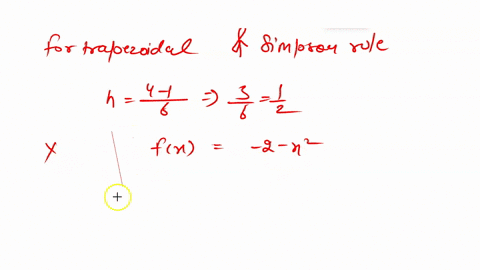 for trapezoidal & Simpson rule
h = 4-1/6 => 3/6 = 1/2
x f(x) = -2-x²